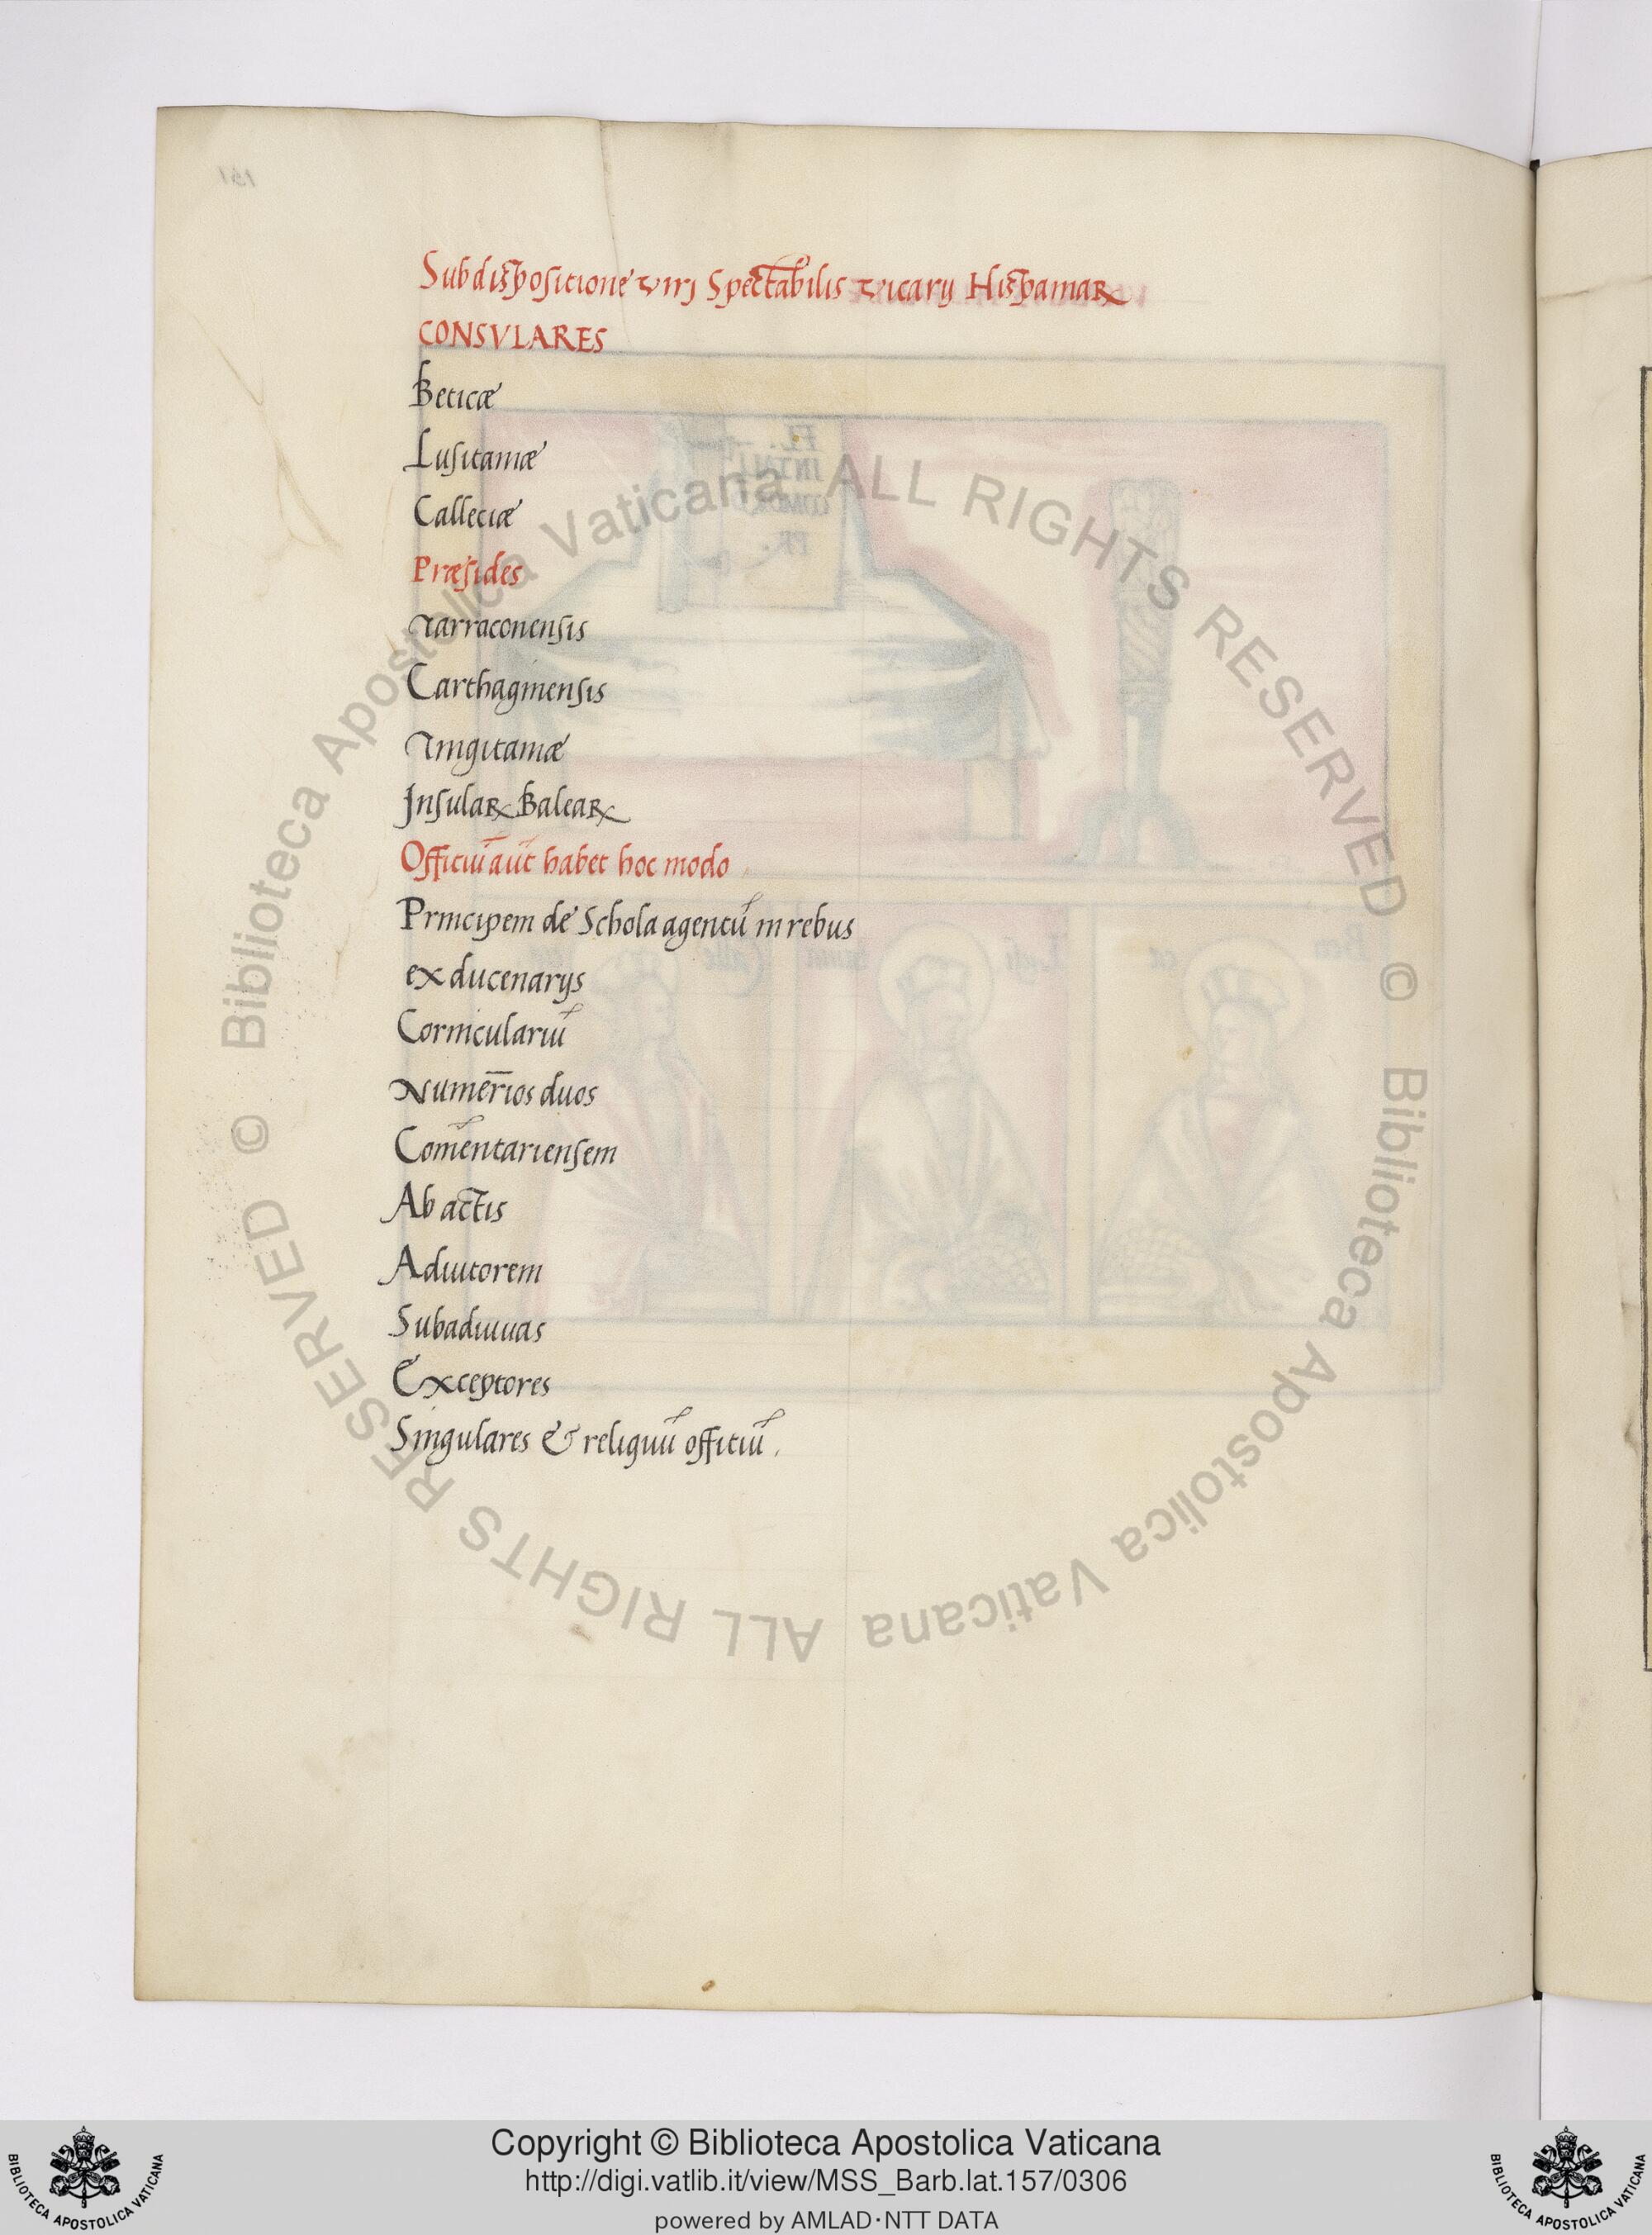 Subdispositione viri Spectabilis vicarij Hispaniaꝝ
CONSVLARES
Beticæ
Lusitaniæ
Calleciæ
Præsides
Tarraconensis
Carthaginensis
Tingitaniæ
Insulaꝝ Baleaꝝ
Officiū aūt habet hoc modo
Principem de Schola agentū in rebus
ex ducenarijs
Corniculariū
Numer̄ios duos
Com̄entariensem
Ab actis
Adiutorem
Subadiuuas
Exceptores
Singulares & reliquū officiū.
© Biblioteca Apostolica Vaticana ALL RIGHTS RESERVED
© Biblioteca Apostolica Vaticana ALL RIGHTS RESERVED
Copyright © Biblioteca Apostolica Vaticana
http://digi.vatlib.it/view/MSS_Barb.lat.157/0306
powered by AMLAD·NTT DATA
BIBLIOTECA APOSTOLICA VATICANA
BIBLIOTECA APOSTOLICA VATICANA